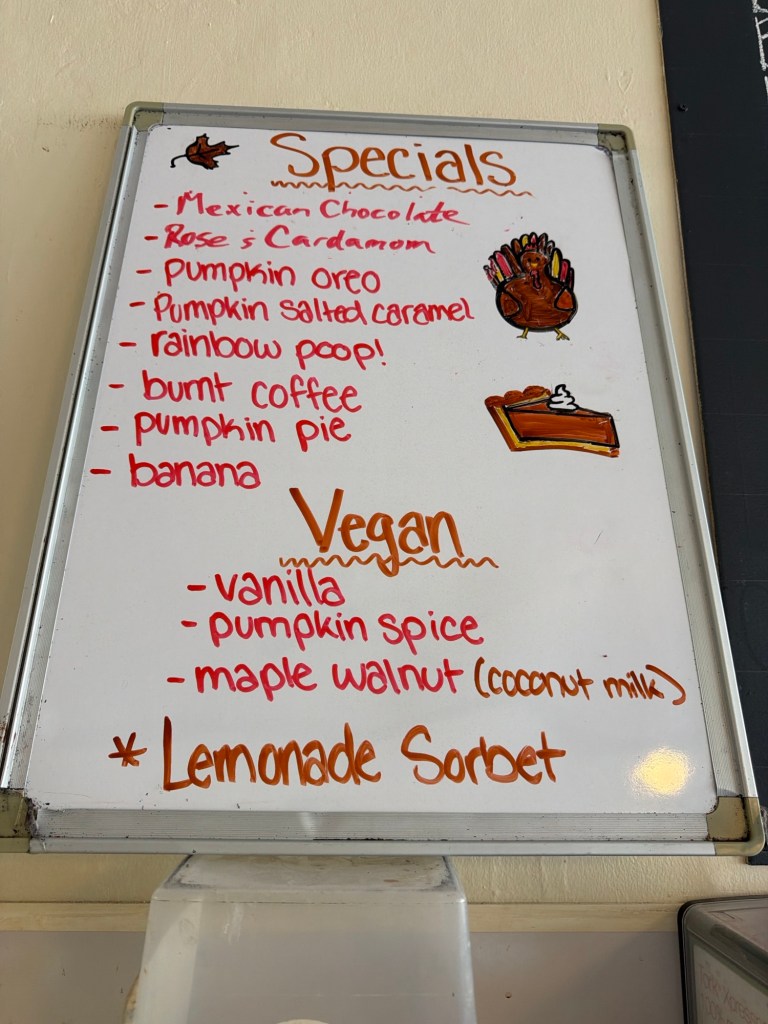 Specials
- Mexican Chocolate
- Rose & Cardamom
- pumpkin oreo
- Pumpkin salted caramel
- rainbow poop!
- burnt coffee
- pumpkin pie
- banana
Vegan
- vanilla
- pumpkin spice
- maple walnut (coconut milk)
* Lemonade Sorbet